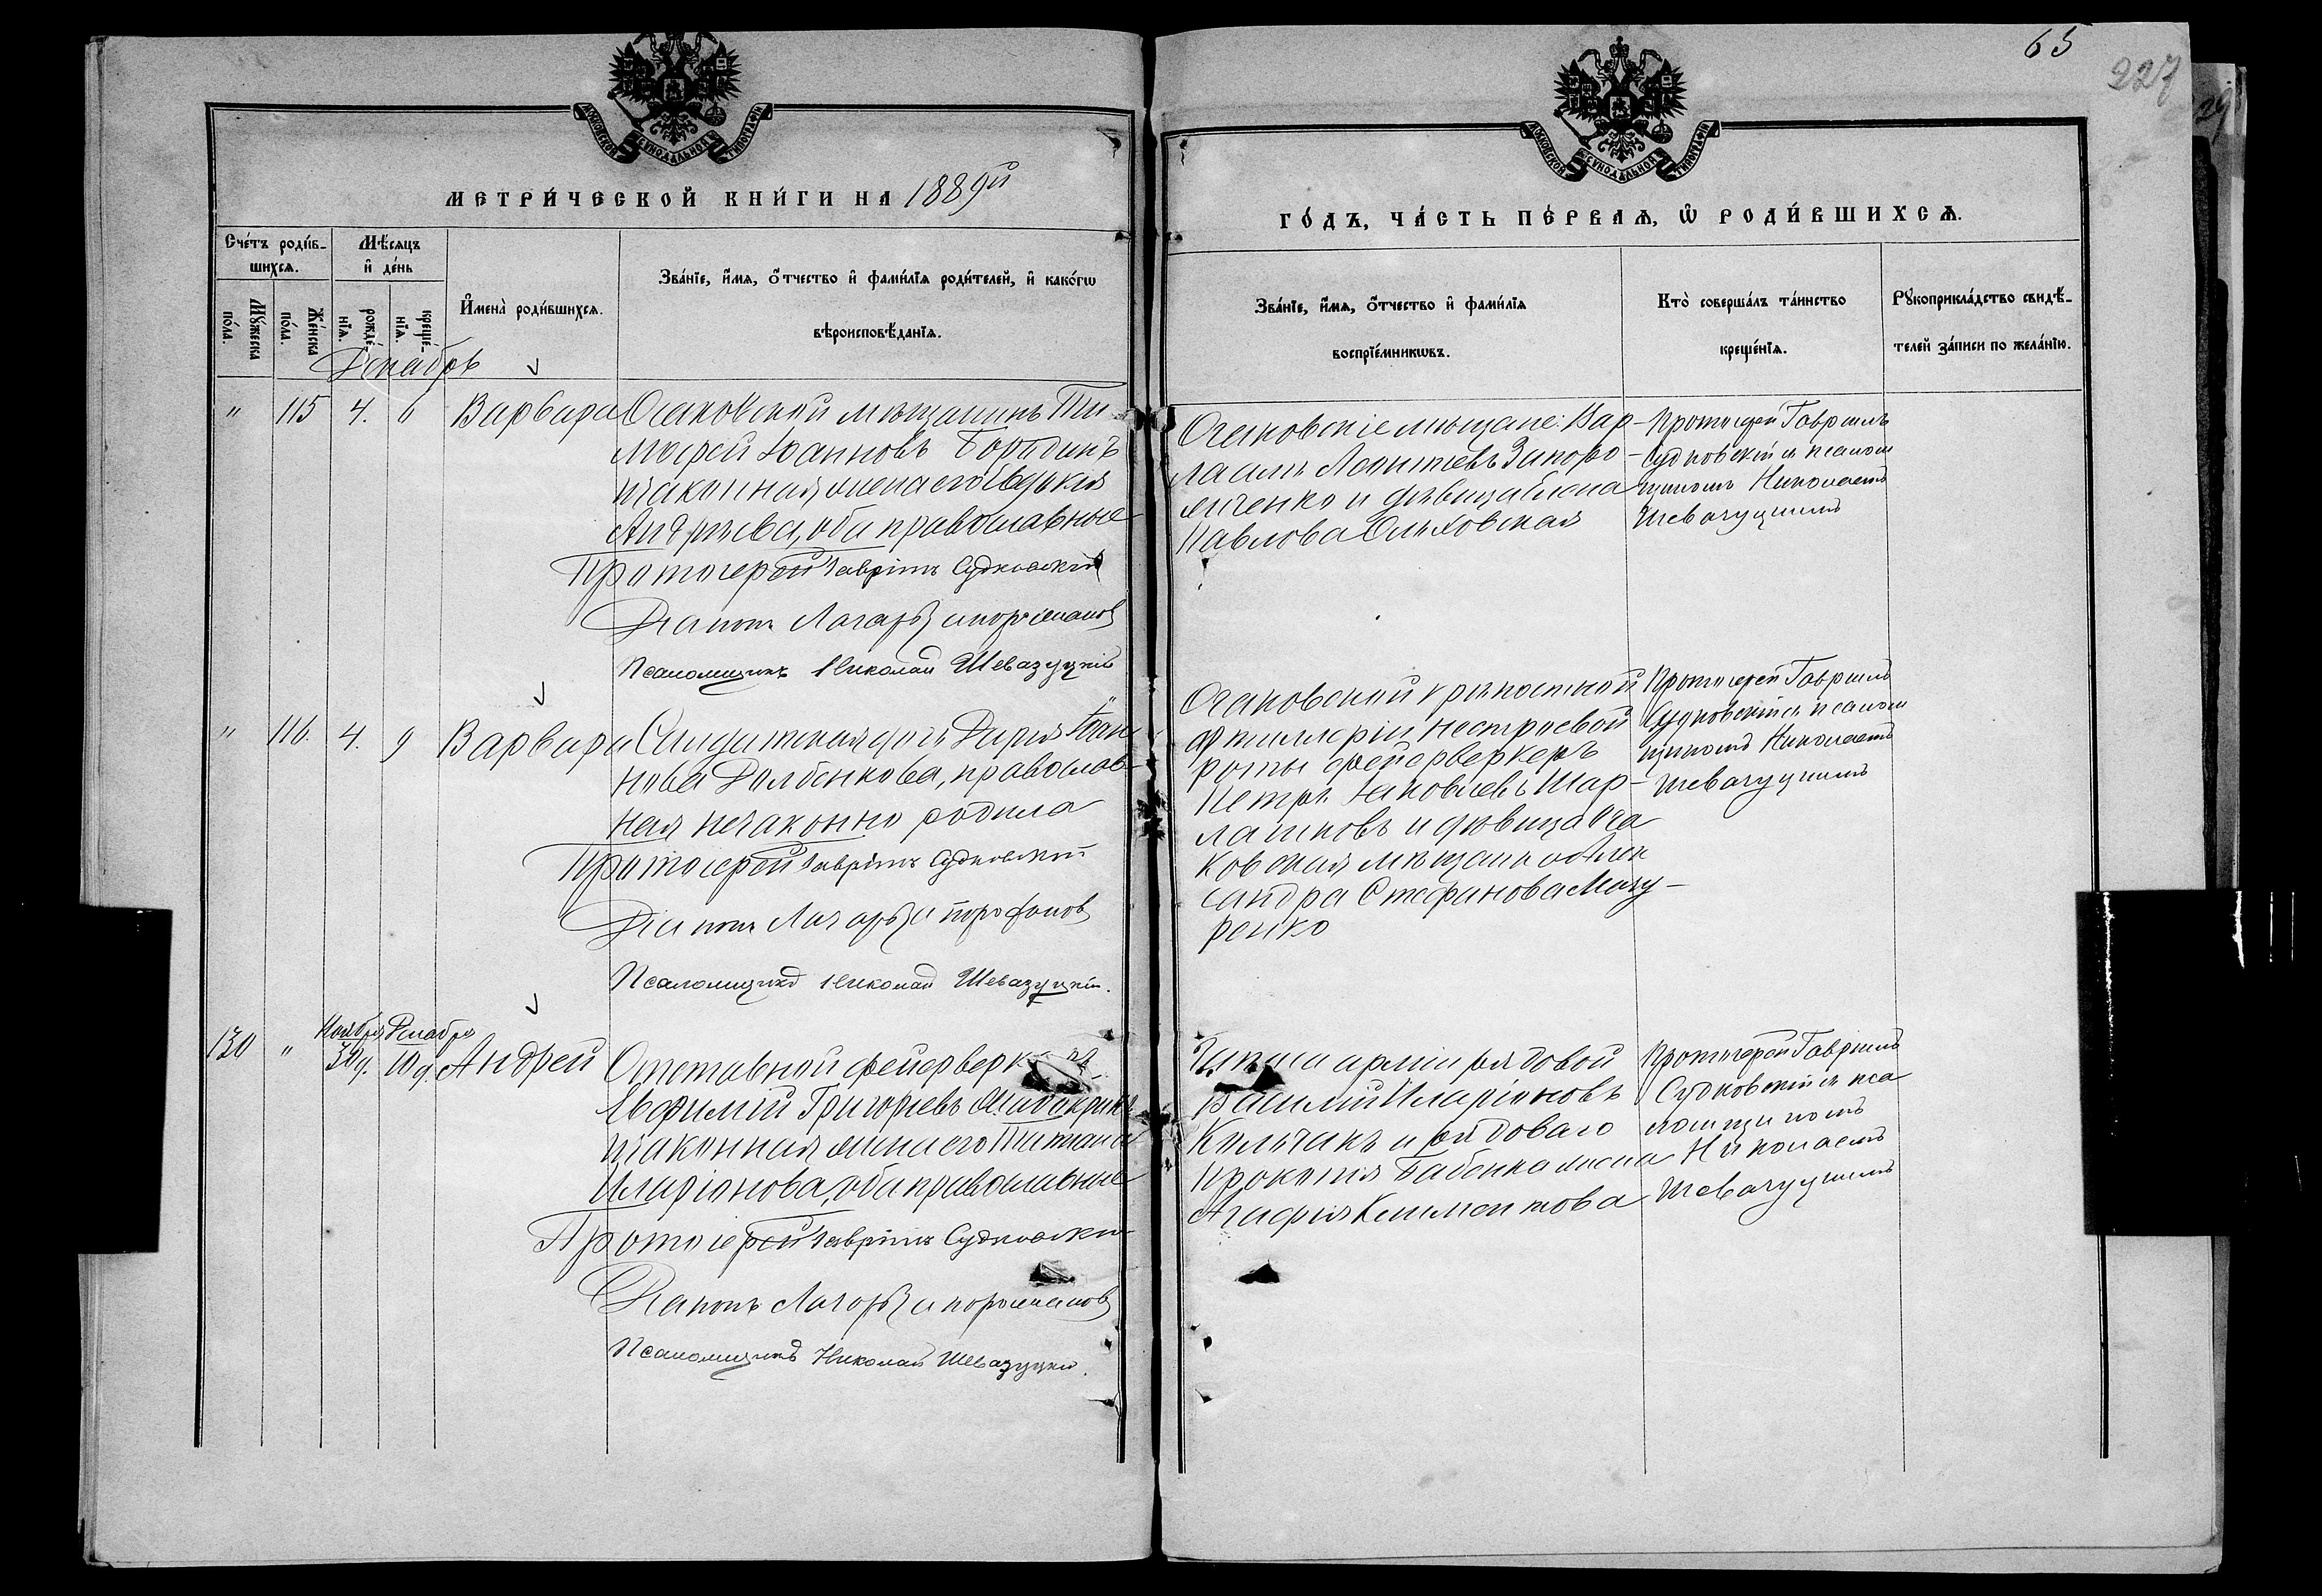 65
227
МОСКОВСКОЙ СУНОДАЛЬНОЙ ТИПОГРАФІИ
МОСКОВСКОЙ СУНОДАЛЬНОЙ ТИПОГРАФІИ
МЕТРИ́ЧЕСКОЙ КНИ́ГИ НА 1889й
ГО́ДЪ, ЧА́СТЬ ПЕ́РВАѦ, Ѡ РОДИ́ВШИХСѦ.
Сче́тъ роди́в-
шихсѧ.
Му́жеска по́ла.
Же́нска по́ла.
Мѣ́сѧцъ
и де́нь
рожде́-нїѧ.
креще́-нїѧ.
Имена̀ роди́вшихсѧ.
Зва́нїе, и́мѧ, о́тчество и фами́лїѧ роди́телей, и како́гѡ
вѣроисповѣ́данїѧ.
Зва́нїе, и́мѧ, о́тчество и фами́лїѧ
воспрїе́мникѡвъ.
Кто̀ соверша́лъ та́инство
креще́нїѧ.
Рꙋкоприкла́дство свидѣ́-
телей за́писи по жела́нїю.
Декабрь
" 115 4. 6 Варвара
Очаковскій мѣщанинъ Ти-
мофей Іоанновъ Бородинъ
и законная жена его Евдокія
Андреева, оба православные
Протоіерей Гавріилъ Судковскій
Діаконъ Лазарь
Псаломщикъ Николай Шевазуцкій
Очаковскіе мѣщане: Вар-
лаамъ Леонтіевъ Запоро-
женко и дѣвица Елена
Павлова Ольховская
Протоіерей Гавріилъ
Судковскій съ псалом
щикомъ Николаемъ
Шевазуцкимъ
" 116. 4. 9 Варвара
Солдатская дочь Дарія Іоан
нова Долбенкова, православ-
ная незаконно родила
Протоіерей Гавріилъ Судковскій
Діаконъ Лазарь
Псаломщикъ Николай Шевазуцкій.
Очаковской крѣпостной
артиллеріи нестроевой
роты фейерверкеръ
Петръ Іаковлевъ Шар-
лашковъ и дѣвица Оча
ковская мѣщанка Алек
сандра Стефанова Мазу-
ренко
Протоіерей Гавріилъ
Судковскій съ псалом
щикомъ Николаемъ
Шевазуцкимъ
Ноября Декабря
130 " 30д. 10д. Андрей
Отставной фейерверкеръ
Евфимій Григорьевъ
и законная жена его Татіана
Иларіонова, оба православные
Протоіерей Гавріилъ Судковскій
Діаконъ Лазарь
Псаломщикъ Николай Шевазуцкій.
Запаса арміи рядовой
Василій Иларіоновъ
Колтакъ и рядоваго
Прокопія Бабенка жена
Агафія Климентова
Протоіерей Гавріилъ
Судковскій съ пса
ломщикомъ
Николаемъ
Шевазуцкимъ